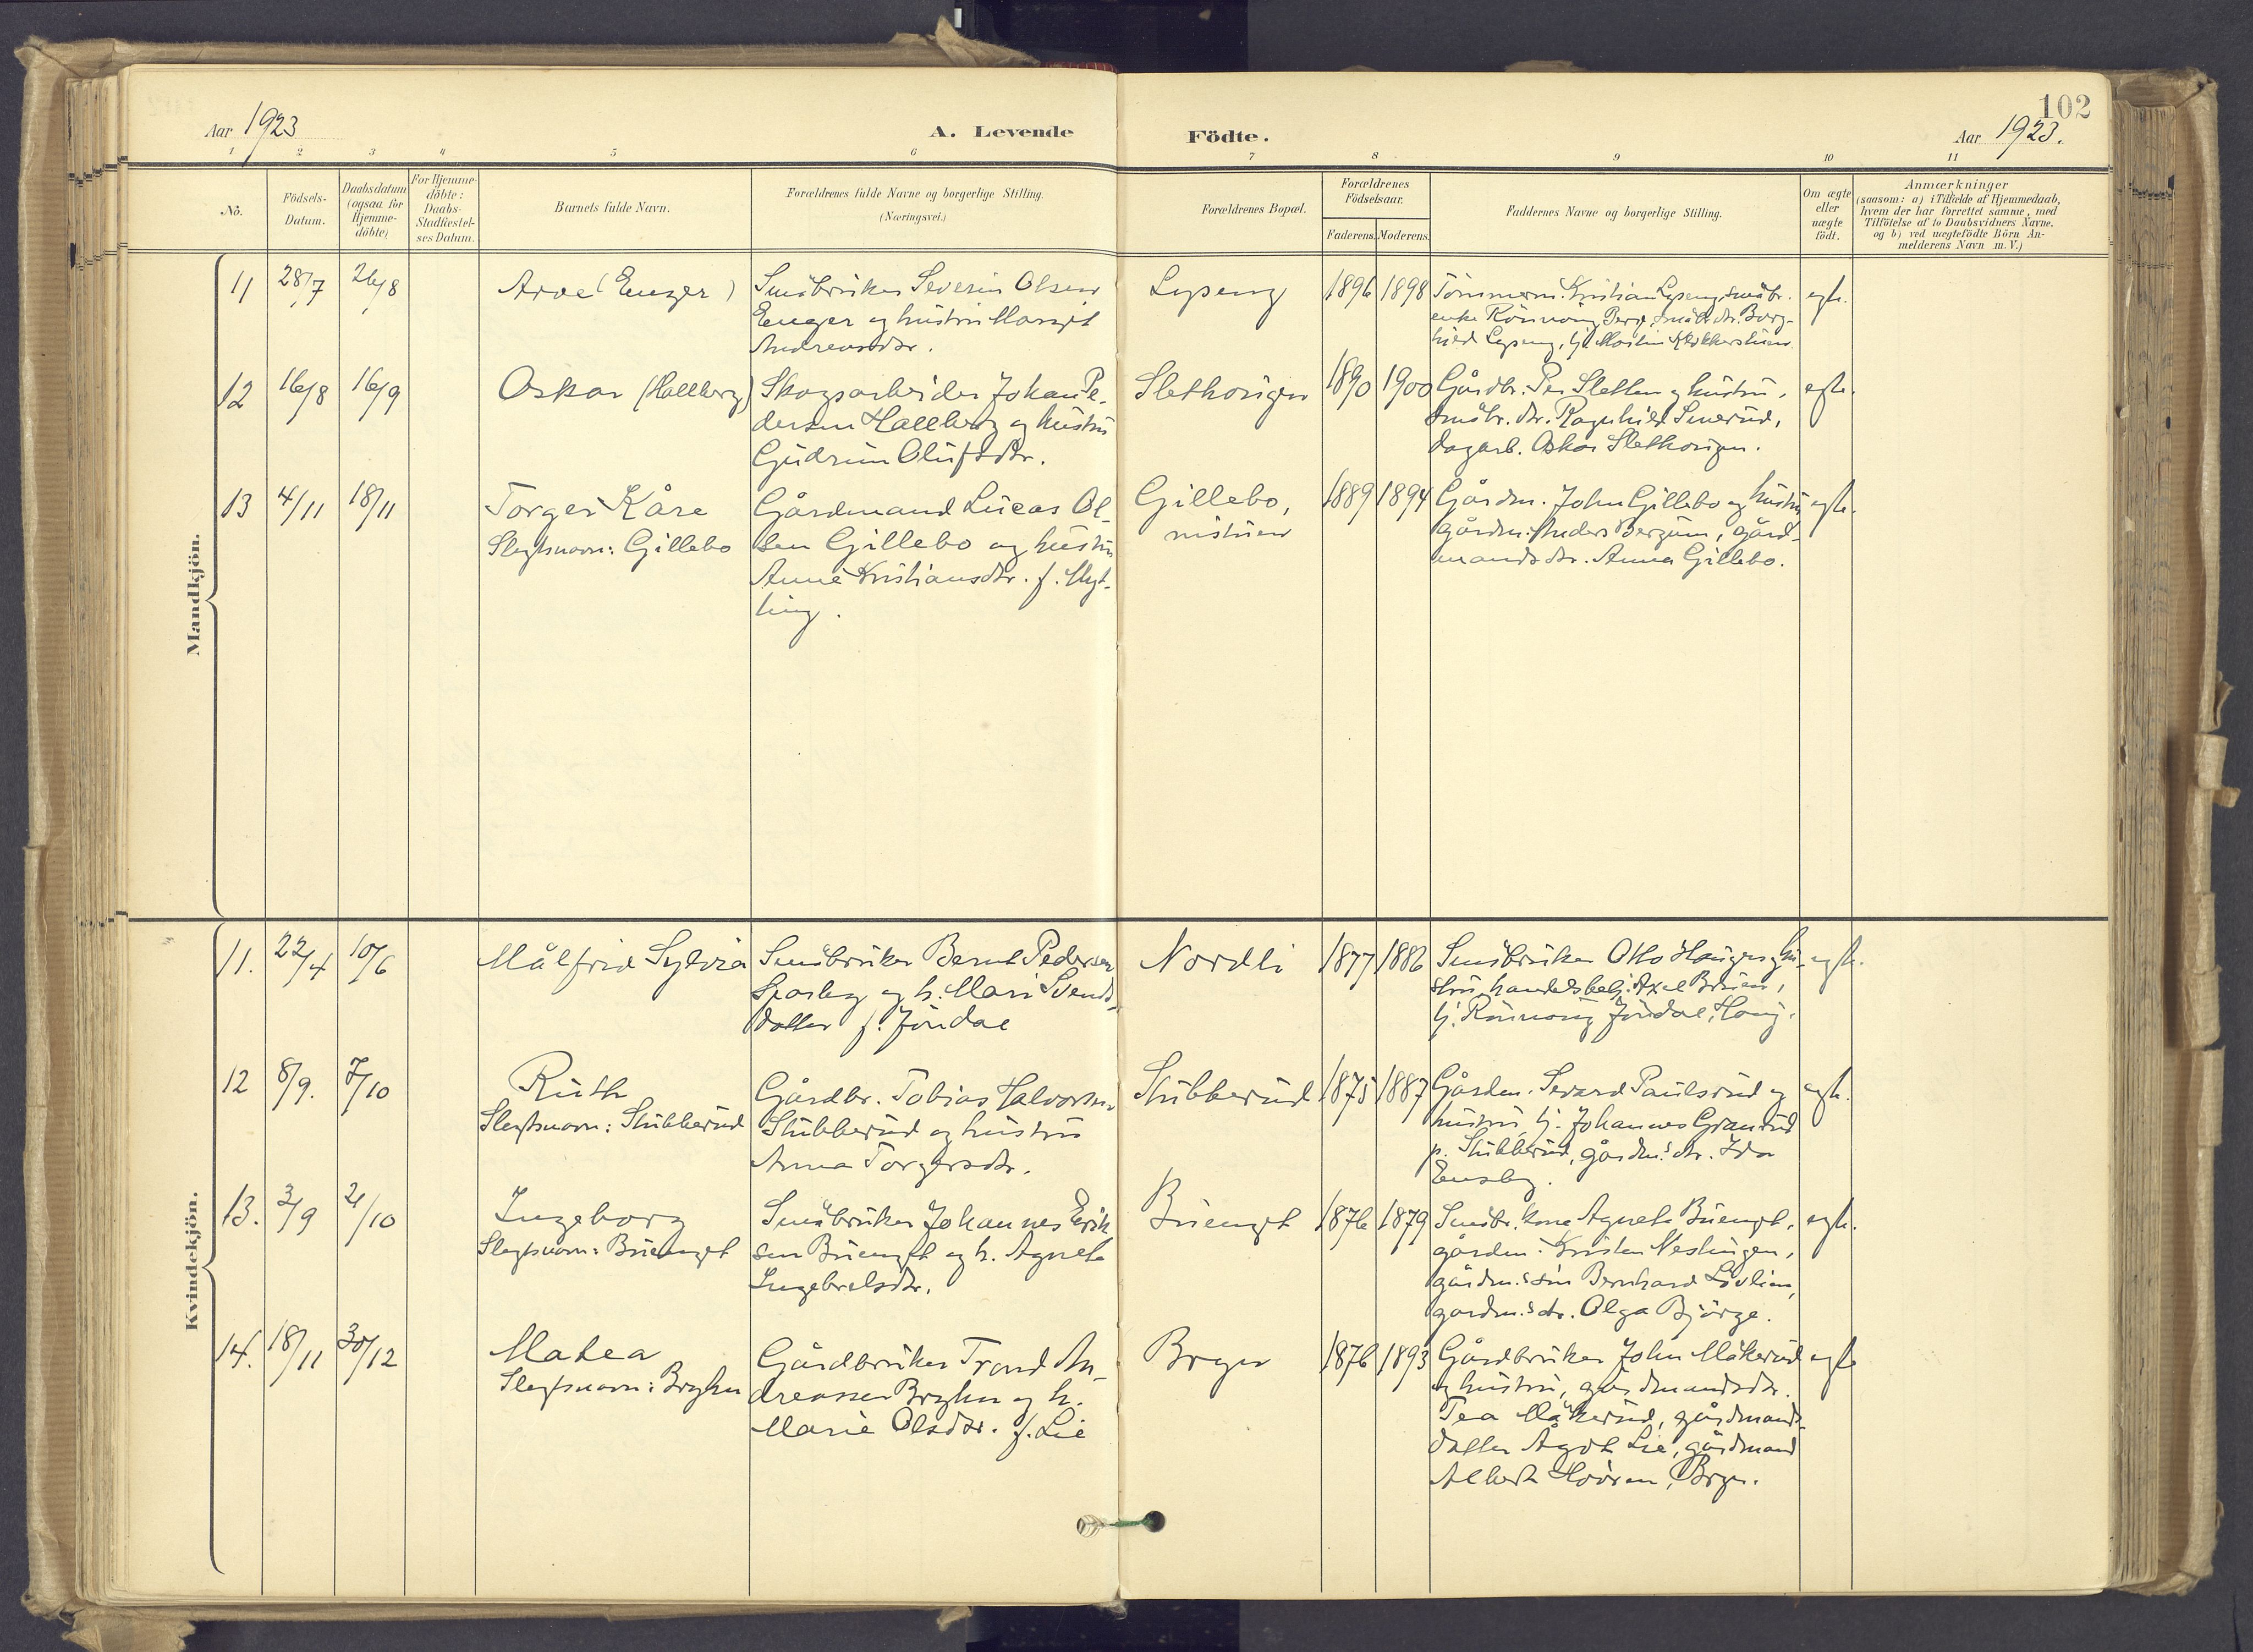 102
Aar 1923
A. Levende Födte.
Aar 1923.
1 2 3 4 5 6 7 8 9 10 11
No.
Födsels-
Datum.
Daabsdatum
(ogsaa for
Hjemme-
döbte)
For Hjemme-
döbte:
Daabs-
Stadfæstel-
ses Datum.
Barnets fulde Navn.
Forældrenes fulde Navne og borgerlige Stilling.
(Næringsvei.)
Forældrenes Bopæl.
Forældrenes
Födselsaar.
Faderens. Moderens.
Faddernes Navne og borgerlige Stilling.
Om ægte
eller
uægte
födt.
Anmærkninger
(saasom: a) i Tilfælde af Hjemmedaab,
hvem der har forrettet samme, med
Tilföielse af to Daabsvidners Navne.
og b) ved uægtefödte Börn An-
melderens Navn m. V.)
Mandkjön.
11 28/7 26/8
Arve (Enger)
Småbruker Severin Olsen
Enger og hustru Margit
Andreasdtr.
Lypeng
1896 1898
Tömmerm. Kristian Lypeng, småbr.
enke Rönnaug Berg, småbr. dtr. Borg-
hild Lypeng, tj. Martin Klokkerstuen
egte.
12 16/8 16/9
Oskar (Hallberg)
Skogsarbeider Johan Pe-
dersen Hallberg og hustru
Gudrun Olufsdtr.
Slethaugen
1890 1900
Gårdbr. Per Sletten og hustru,
småbr. dtr. Ragnhild Smerud,
dagarb. Oskar Slethaugen.
egte.
13 4/11 18/11
Torger Kåre
Slegtsnavn: Gillebo
Gårdmand Lucas Ol-
sen Gillebo og hustru
Anne Kristiansdtr. f. Myt-
ting.
Gillebo,
nistuen
1889 1894
Gårdm. John Gillebo og hustru
gårdm. Anders Bergum, gård-
mandsdtr. Anna Gillebo.
egte.
Kvindekjön.
11. 22/4 10/6
Målfrid Sylvia
Småbruker Bernt Pedersen
Sparby og h. Mari Svends-
datter f. Jöndal
Nordli
1877 1886
Småbruker Otto Haugen og hu-
stru, handelsbetj. Axel Bruun,
tj. Rönnaug Jöndal, Haug.
egte.
12 8/9. 7/10
Ruth
Slegtsnavn: Stubberud
Gårdbr. Tobias Halvorsen
Stubberud og hustru
Anna Torgersdtr.
Stubberud
1875 1887
Gårdm. Sevard Paulsrud og
hustru, tj. Johannes Granrud
p. Stubberud, gårdm.s dtr. Ida
Ensby.
egte.
13. 3/9 21/10
Ingeborg
Slegtsnavn: Buenget
Småbruker Johannes Erik-
sen Buenget og h. Agnete
Ingebretsdtr.
Buenget
1876 1879
Småbr. kone Agnete Buenget,
gårdm. Kristen Nestingen,
gårdm.s sön Bernhard Lövlien,
gårdm.s dtr. Olga Björge.
egte.
14. 18/11 30/12
Matea
Slegtsnavn: Bryhn
Gårdbruker Trond An-
dreassen Bryhn og h.
Marie Olsdtr. f. Lie
Bryn
1876 1893
Gårdbruker John Måkerud
og hustru, gårdmandsdtr.
Tea Måkerud, gårdmands-
datter Ågot Lie, gårdmand
Albert Hovren, Bryn.
egte